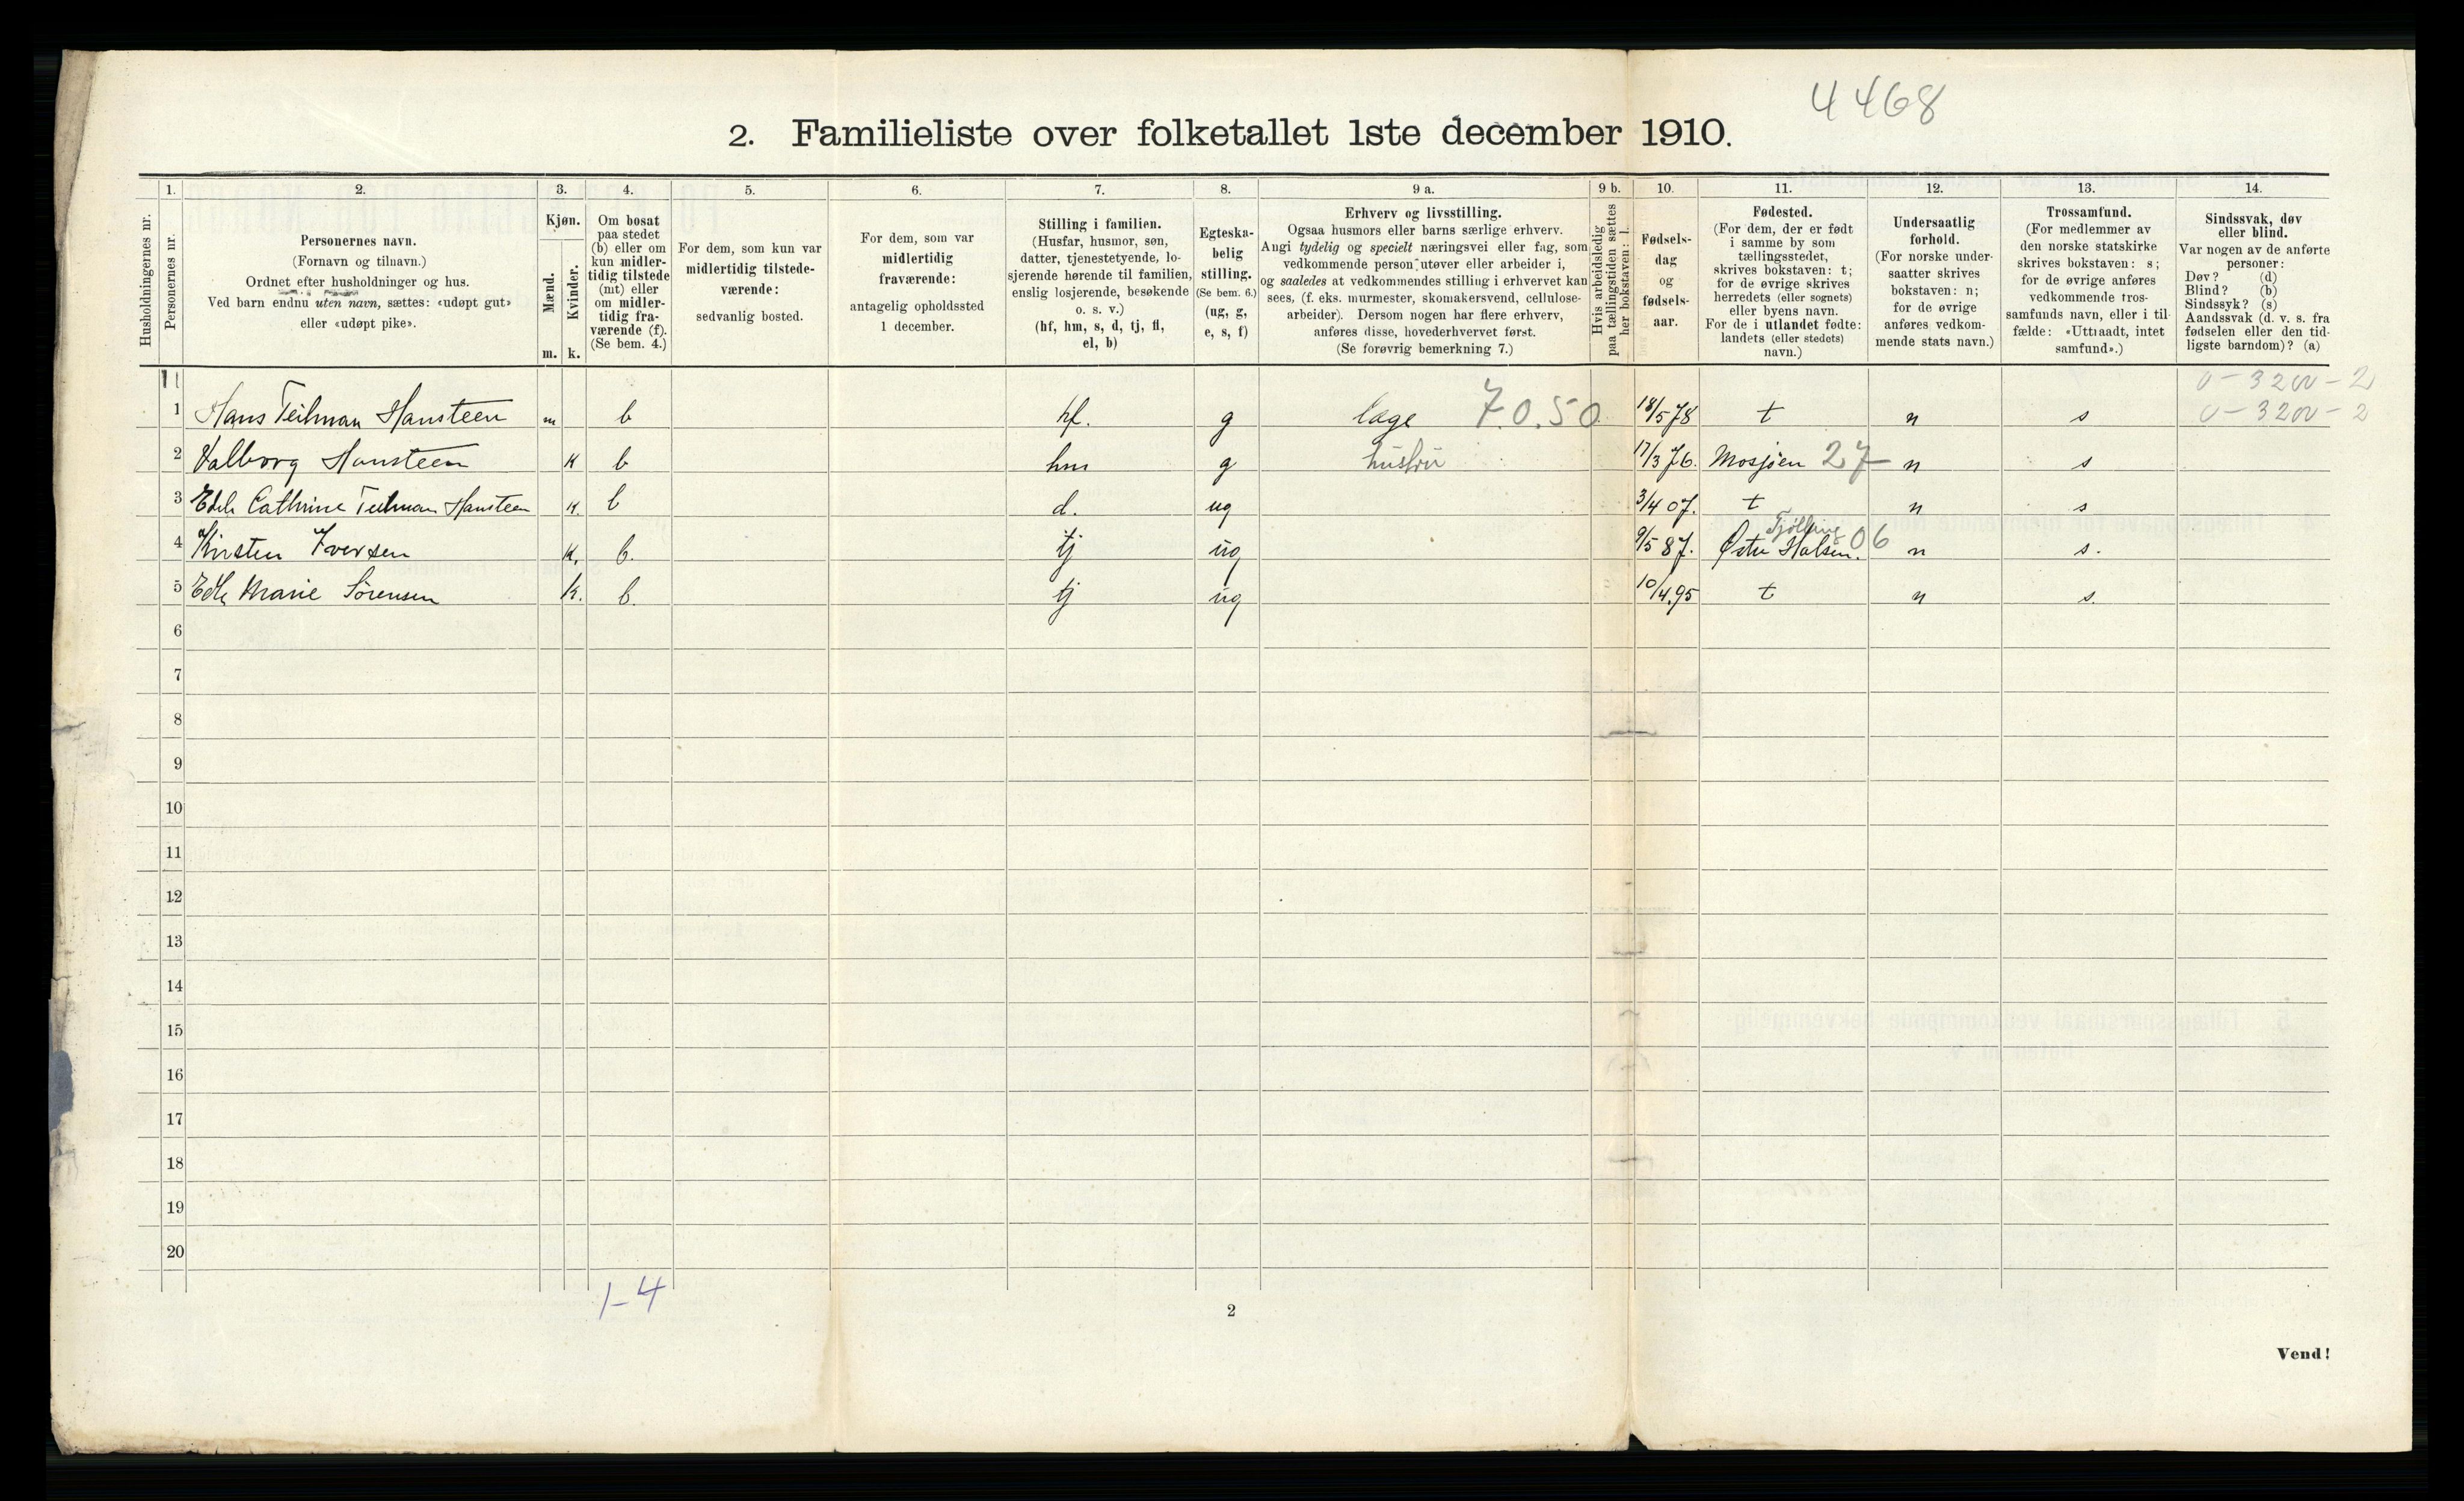 4468
2. Familieliste over folketallet 1ste december 1910.
Husholdningernes nr.
1.
Personernes nr.
2.
Personernes navn.
(Fornavn og tilnavn.)
Ordnet efter husholdninger og hus.
Ved barn endnu uten navn, sættes: «udøpt gut»
eller «udøpt pike».
3.
Kjøn.
Mænd.
Kvinder.
m. k.
4.
Om bosat
paa stedet
(b) eller om
kun midler-
tidig tilstede
(mt) eller
om midler-
tidig fra-
værende (f).
(Se bem. 4.)
5.
For dem, som kun var
midlertidig tilstede-
værende:
sedvanlig bosted.
6.
For dem, som var
midlertidig
fraværende:
antagelig opholdssted
1 december.
7.
Stilling i familien.
(Husfar, husmor, søn,
datter, tjenestetyende, lo-
sjerende hørende til familien,
enslig losjerende, besøkende
o. s. v.)
(hf, hm, s, d, tj, fl,
el, b)
8.
Egteska-
belig
stilling.
(Se bem. 6.)
(ug, g,
e, s, f)
9 a.
Erhverv og livsstilling.
Ogsaa husmors eller barns særlige erhverv.
Angi tydelig og specielt næringsvei eller fag, som
vedkommende person utøver eller arbeider i,
og saaledes at vedkommendes stilling i erhvervet kan
sees, (f. eks. murmester, skomakersvend, cellulose-
arbeider). Dersom nogen har flere erhverv,
anføres disse, hovederhvervet først.
(Se forøvrig bemerkning 7.)
9 b.
Hvis arbeidsledig
paa tællingstiden sættes
her bokstaven: l.
10.
Fødsels-
dag
og
fødsels-
aar.
11.
Fødested.
(For dem, der er født
i samme by som
tællingsstedet,
skrives bokstaven: t;
for de øvrige skrives
herredets (eller sognets)
eller byens navn.
For de i utlandet fødte:
landets (eller stedets)
navn.)
12.
Undersaatlig
forhold.
(For norske under-
saatter skrives
bokstaven: n;
for de øvrige
anføres vedkom-
mende stats navn.)
13.
Trossamfund.
(For medlemmer av
den norske statskirke
skrives bokstaven: s;
for de øvrige anføres
vedkommende tros-
samfunds navn, eller i til-
fælde: «Uttraadt, intet
samfund».)
14.
Sindssvak, døv
eller blind.
Var nogen av de anførte
personer:
Døv? (d)
Blind? (b)
Sindssyk? (s)
Aandssvak (d. v. s. fra
fødselen eller den tid-
ligste barndom)? (a)
0-3200-2
1 Hans Teilman Hansteen m b hf. g læge 7.0.50 18/5 78 t n s 0-3200-2
2 Valborg Hansteen k b hm g hustru 17/3 76. Mosjøen 27 n s
3 Edle Cathrine Teilman Hansteen k. b d. ug 3/4 07. t n s
Tjølling
4 Kirsten Iversen k. b. tj ug 9/5 87. Østre Halsen. 06 n s.
5 Edle Marie Sørensen k. b. tj ug 10/4.95 t n s.
6
7
8
9
10
11
12
13
14
15
16
17
18
19
20
1-4
2
Vend!